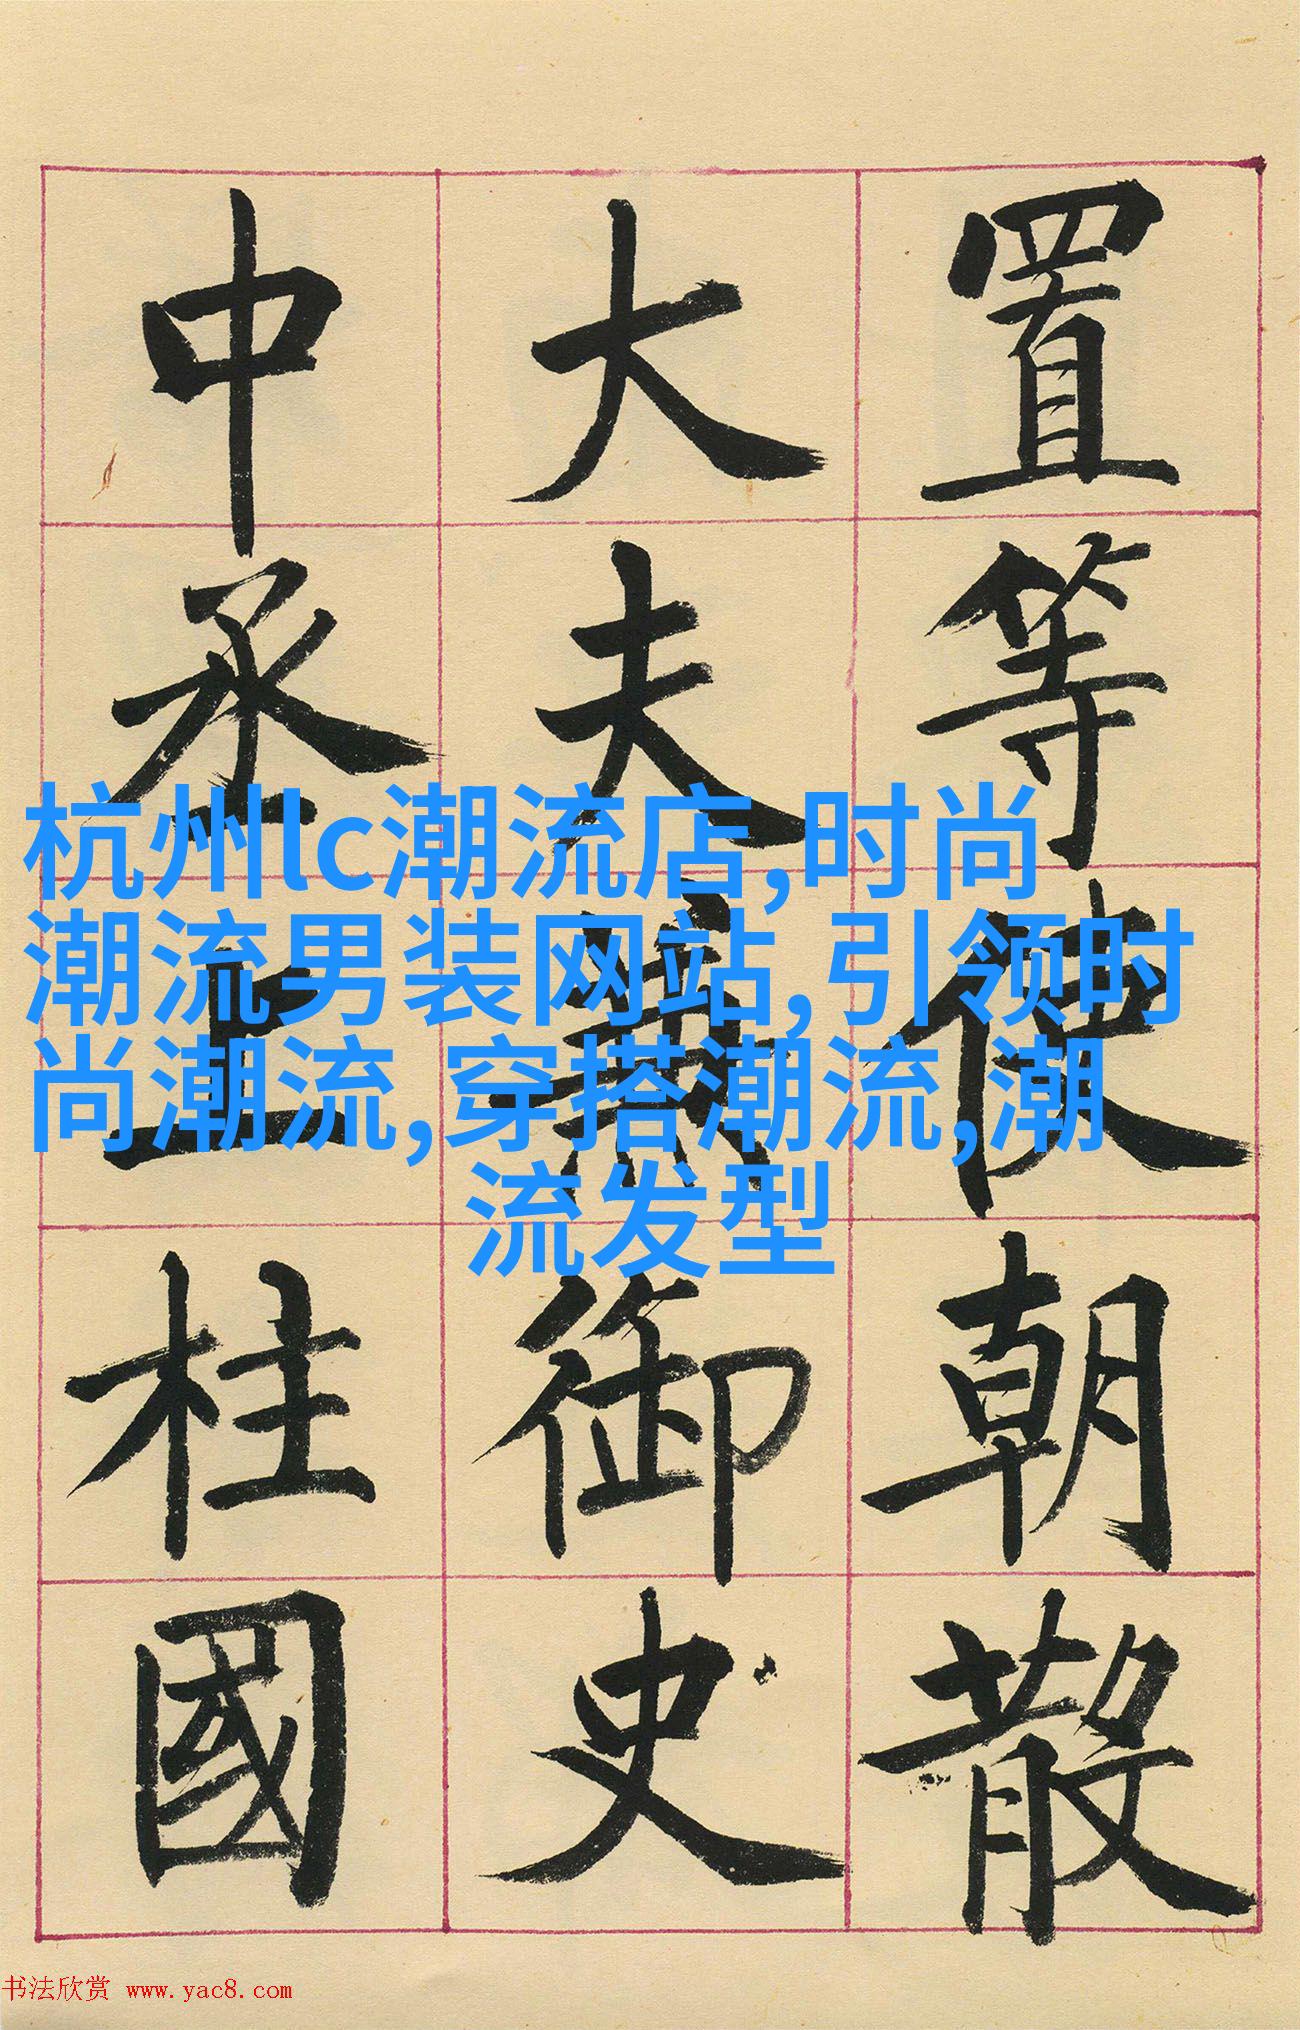 置等使朝散
大夫兼御史
中丞上柱國
杭州lc潮流店,时尚
潮流男装网站,引领时
尚潮流,穿搭潮流,潮
流发型
书法欣赏 www.yac8.com